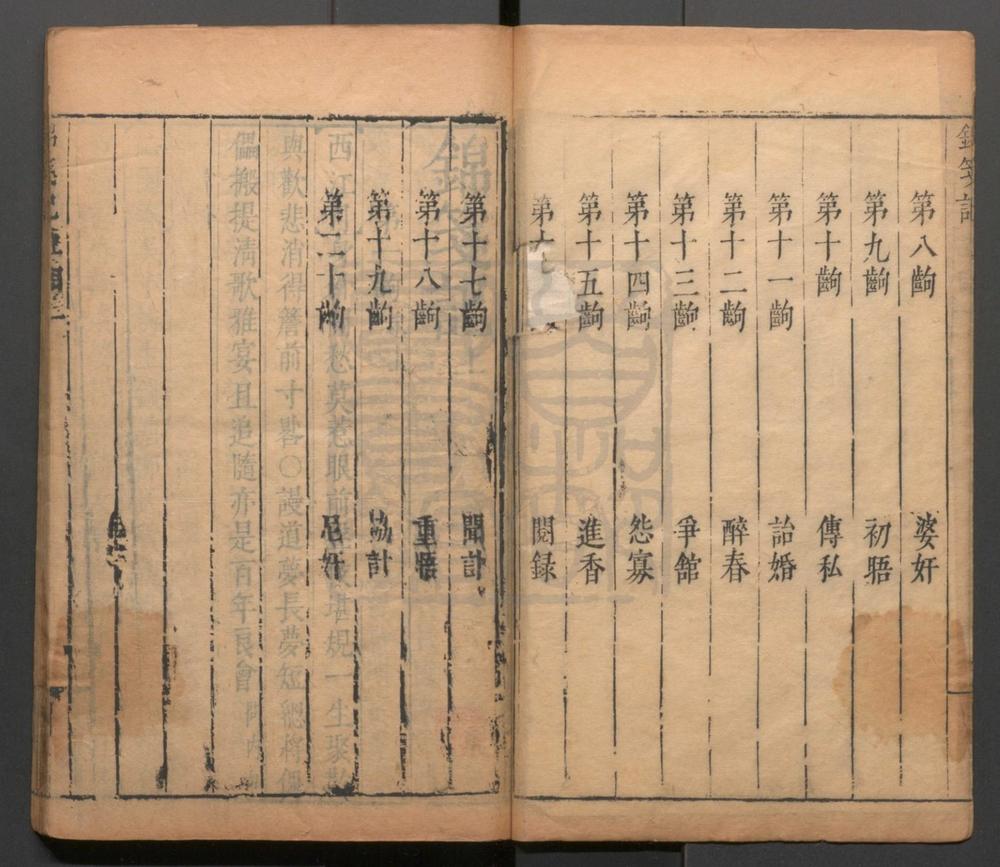 錦箋記
第八齣 婆奸
第九齣 初晤
第十齣 傳私
第十一齣 詒婚
第十二齣 醉春
第十三齣 爭館
第十四齣 怨寡
第十五齣 進香
第十 閱録
第十七齣 聞訃
第十八齣 重晤
第十九齣 協計
第二十齣 尼奸